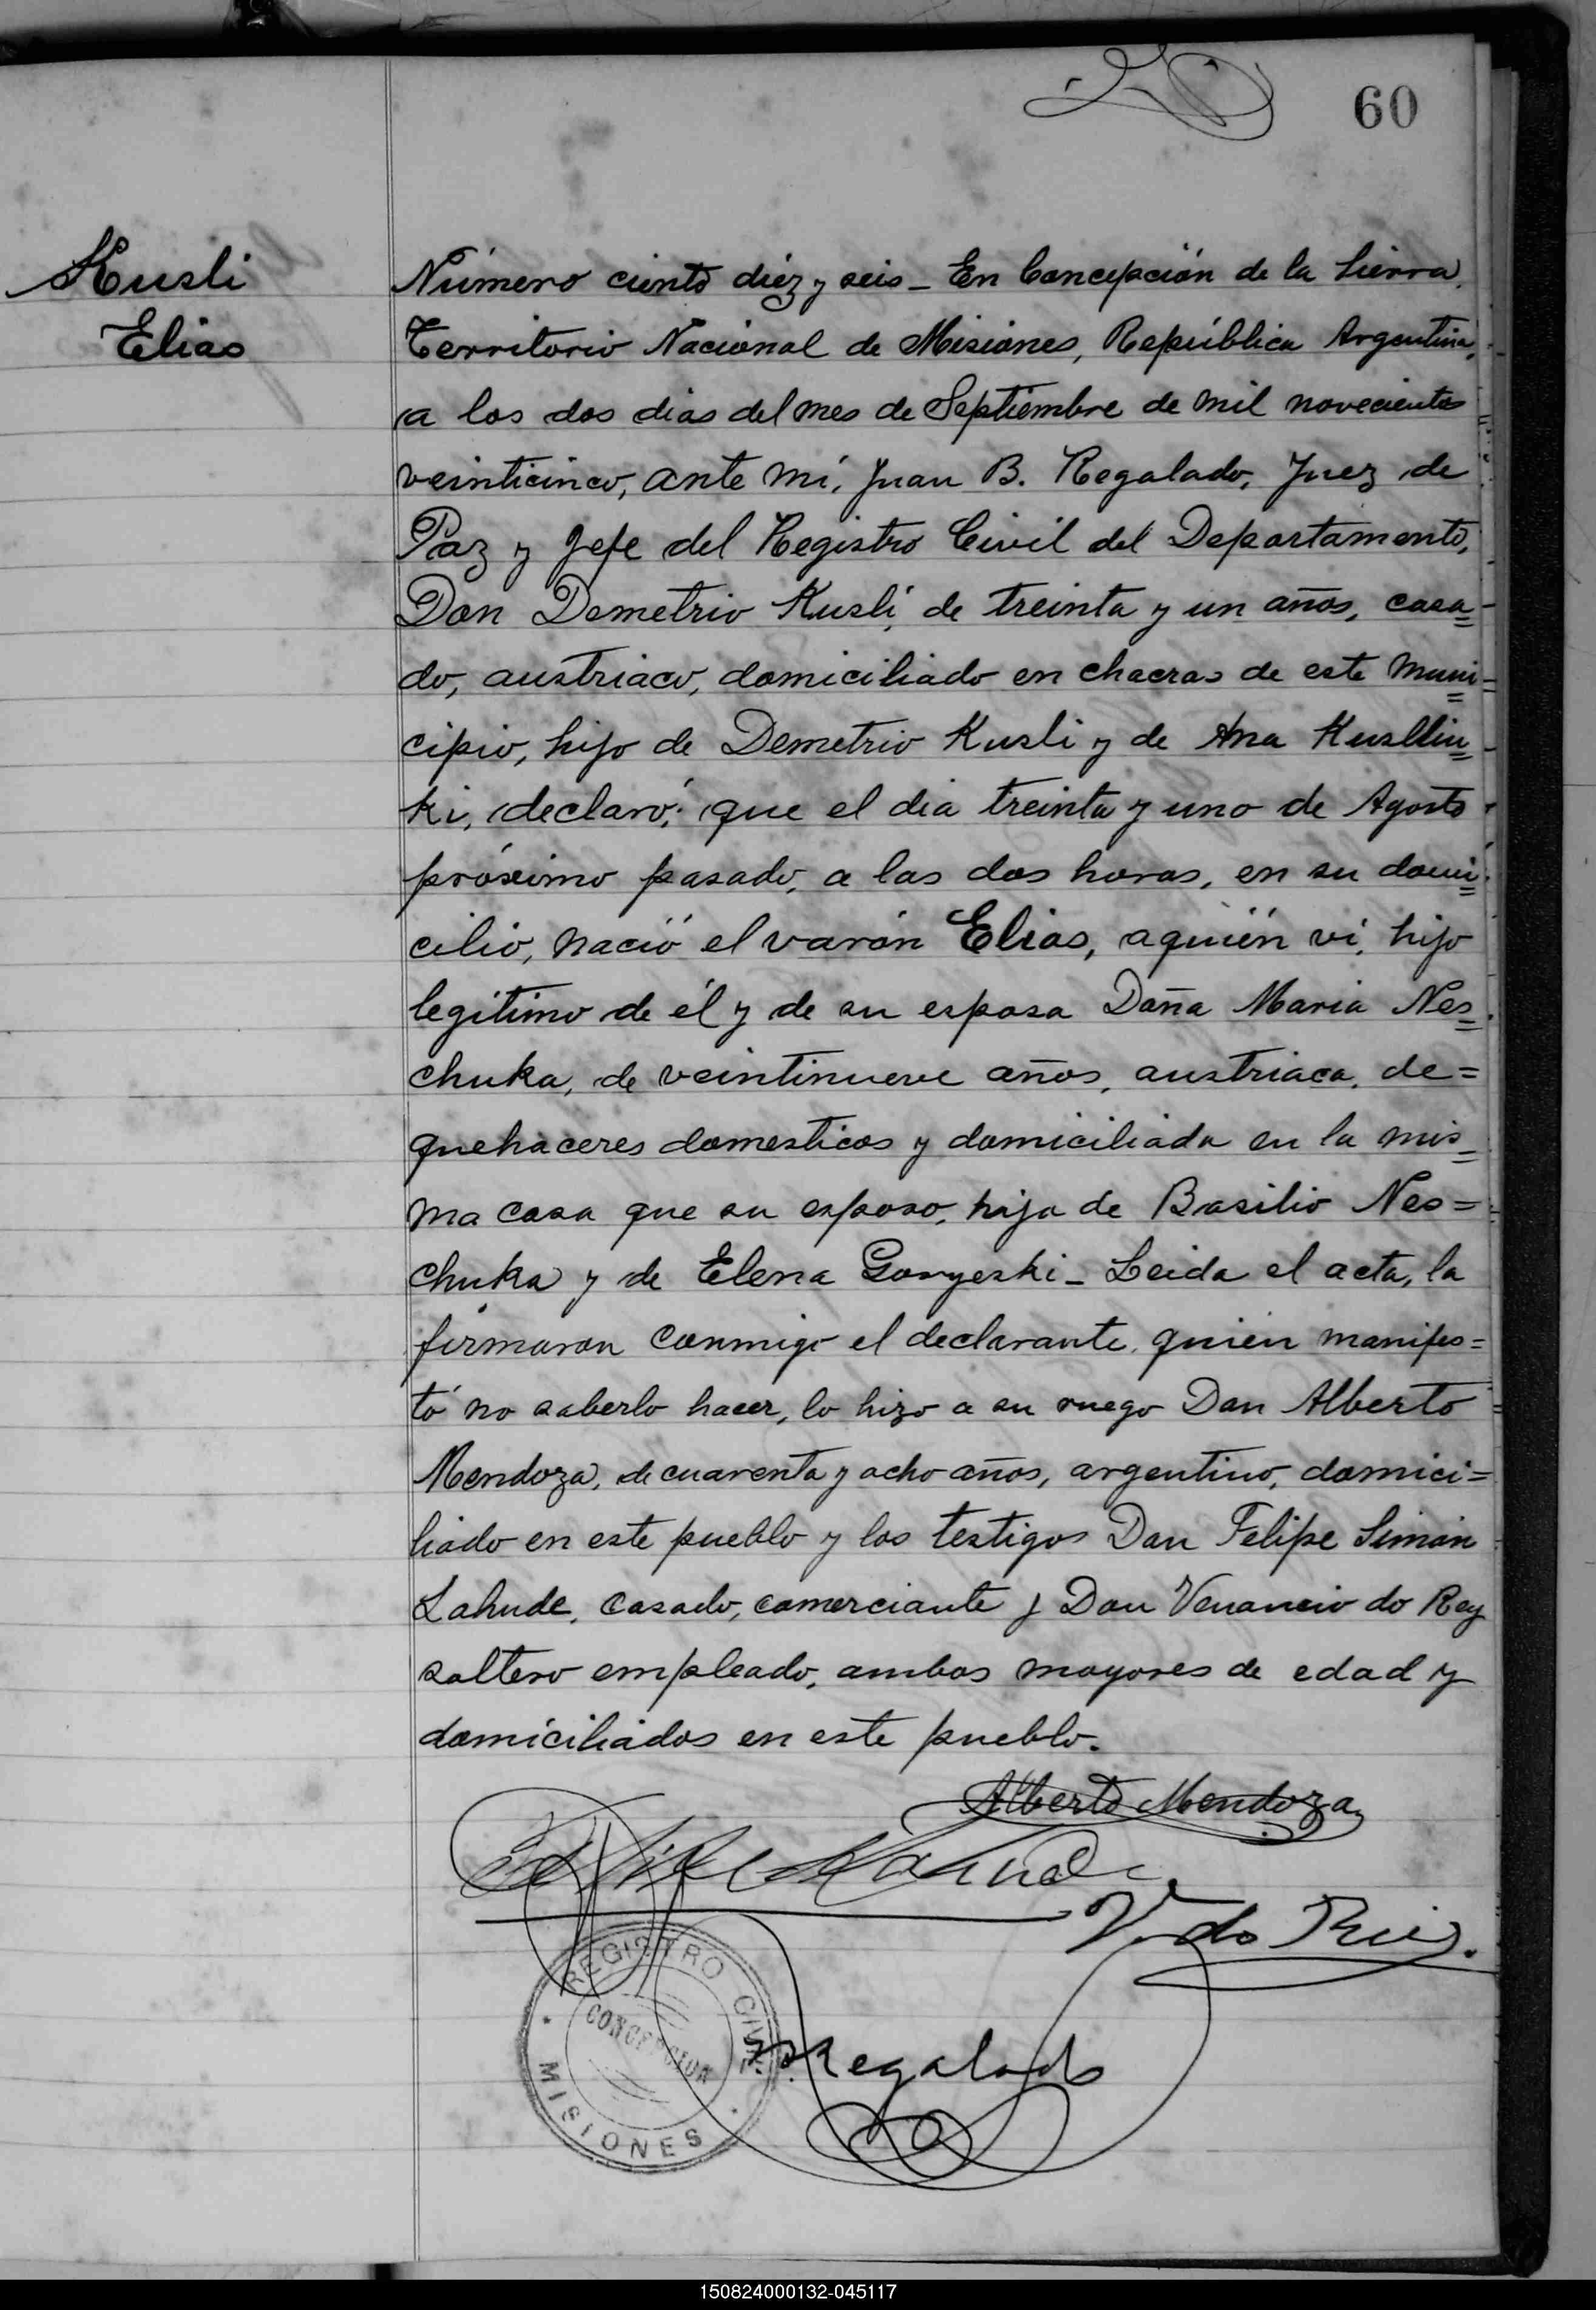 60
Kusli
Elias
Número ciento diéz y seis - En Concepción de la Sierra,
Territorio Nacional de Misiones, República Argentina,
a los dos dias del mes de Septiembre de mil novecientos
veinticinco, ante mí, Juan B. Regalado, Juez de
Paz y Jefe del Registro Civil del Departamento,
Don Demetrio Kusli, de treinta y un años, casa=
do, austriaco, domiciliado en chacras de este muni=
cipio, hijo de Demetrio Kusli y de Ana Kusllin=
ki, declaró: que el dia treinta y uno de Agosto
próximo pasado, a las dos horas, en su domi=
cilio, nació el varón Elias, a quién ví, hijo
legítimo de él y de su esposa Doña Maria Nes=
chuka, de veintinueve años, austriaca, de=
quehaceres domesticos y domiciliada en la mis=
ma casa que su esposo, hija de Basilio Nes=
chuka y de Elena Gonyeski - Leida el acta, la
firmaron conmigo el declarante, quién manifes=
tó no saberlo hacer, lo hizo a su ruego Don Alberto
Mendoza, de cuarenta y ocho años, argentino, domici=
liado en este pueblo y los testigos Don Felipe Simón
Lahude, casado, comerciante y Don Venancio do Rey
soltero empleado, ambos mayores de edad y
domiciliados en este pueblo.
Alberto Mendoza
Felipe Lahude
V. do Rey.
REGISTRO CIVIL
CONCEPCION
MISIONES
Regalado
150824000132-045117